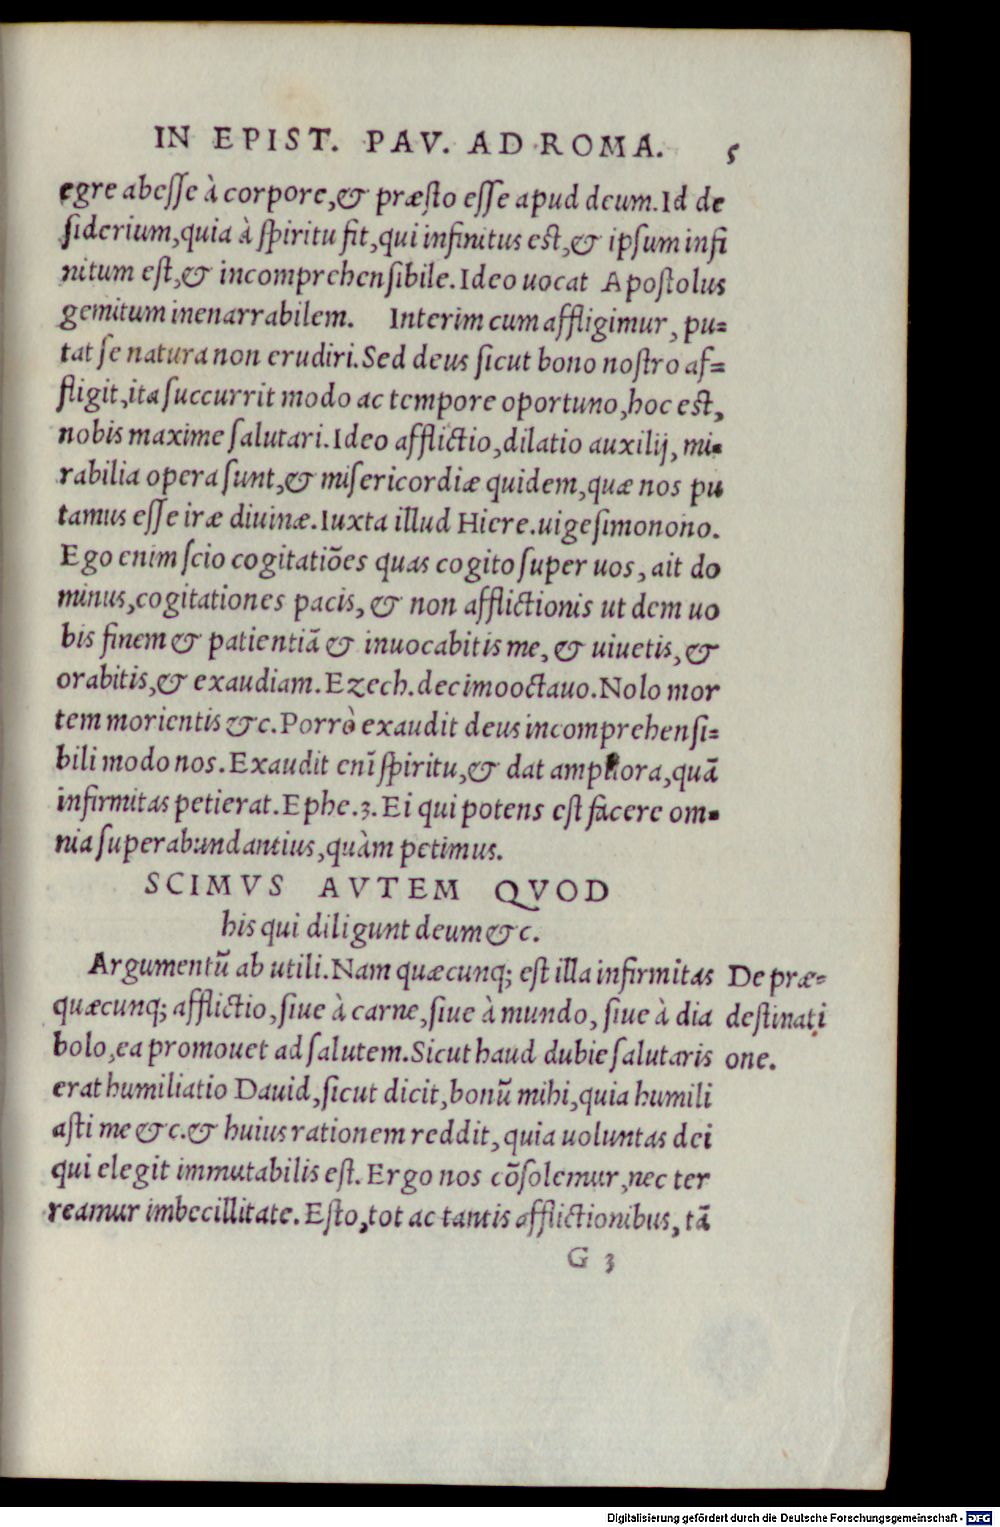 IN EPIST. PAV. AD ROMA. 5
egre abesse à corpore,& præsto esse apud deum. Id de
siderium,quia à spiritu fit,qui infinitus est,& ipsum infi
nitum est,& incomprehensibile. Ideo uocat Apostolus
gemitum inenarrabilem. Interim cum affligimur, pu=
tat se natura non erudiri. Sed deus sicut bono nostro af=
fligit,ita succurrit modo ac tempore oportuno,hoc est,
nobis maxime salutari. Ideo afflictio,dilatio auxilij, mi=
rabilia opera sunt,& misericordiæ quidem,quæ nos pu
tamus esse iræ diuinæ. Iuxta illud Hiere.uigesimonono.
Ego enim scio cogitatiões quas cogito super uos, ait do
minus,cogitationes pacis, & non afflictionis ut dem uo
bis finem & patientiã & inuocabitis me, & uiuetis, &
orabitis,& exaudiam. Ezech.decimooctauo. Nolo mor
tem morientis &c. Porrò exaudit deus incomprehensi=
bili modo nos. Exaudit enĩ spiritu,& dat ampliora,quã
infirmitas petierat. Ephe.3. Ei qui potens est facere om=
nia superabundantius,quàm petimus.
SCIMVS AVTEM QVOD
his qui diligunt deum &c.
Argumentũ ab utili. Nam quæcunq; est illa infirmitas
quæcunq; afflictio, siue à carne,siue à mundo, siue à dia
bolo,ea promouet ad salutem. Sicut haud dubie salutaris
erat humiliatio Dauid,sicut dicit,bonũ mihi,quia humili
asti me &c.& huius rationem reddit, quia uoluntas dei
qui elegit immutabilis est. Ergo nos cõsolemur,nec ter
reamur imbecillitate. Esto,tot ac tantis afflictionibus, tã
De præ=
destinati
one.
G 3
Digitalisierung gefördert durch die Deutsche Forschungsgemeinschaft - DFG